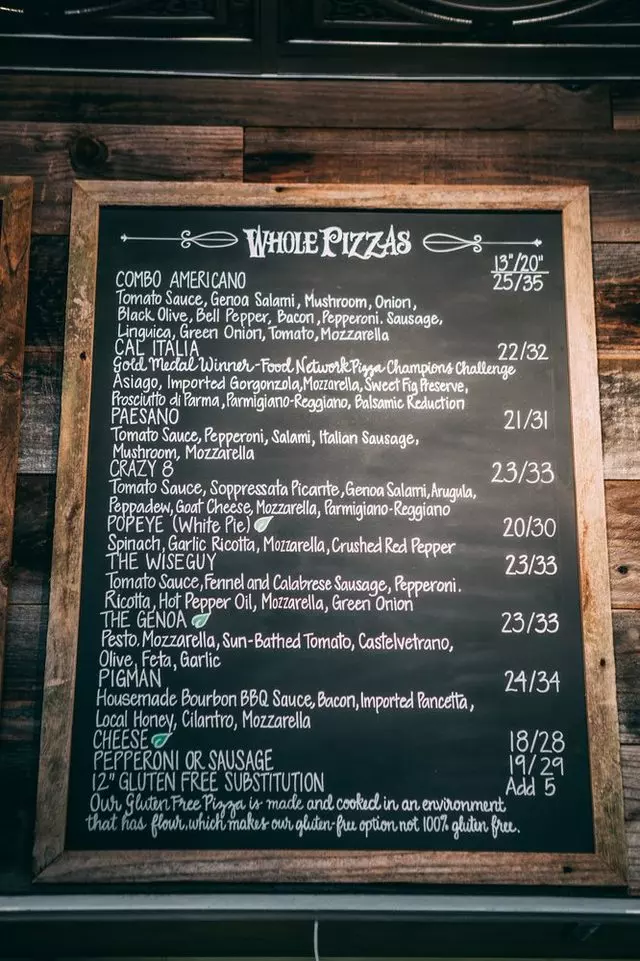 WHOLE PIZZAS
13"/20"
COMBO AMERICANO 25/35
Tomato Sauce, Genoa Salami, Mushroom, Onion,
Black Olive, Bell Pepper, Bacon, Pepperoni, Sausage,
Linguica, Green Onion, Tomato, Mozzarella
CAL ITALIA 22/32
Gold Medal Winner-Food Network Pizza Champions Challenge
Asiago, Imported Gorgonzola, Mozzarella, Sweet Fig Preserve,
Prosciutto di Parma, Parmigiano-Reggiano, Balsamic Reduction
PAESANO 21/31
Tomato Sauce, Pepperoni, Salami, Italian Sausage,
Mushroom, Mozzarella
CRAZY 8 23/33
Tomato Sauce, Soppressata Picante, Genoa Salami, Arugula,
Peppadew, Goat Cheese, Mozzarella, Parmigiano-Reggiano
POPEYE (White Pie) 20/30
Spinach, Garlic Ricotta, Mozzarella, Crushed Red Pepper
THE WISEGUY 23/33
Tomato Sauce, Fennel and Calabrese Sausage, Pepperoni.
Ricotta, Hot Pepper Oil, Mozzarella, Green Onion
THE GENOA 23/33
Pesto. Mozzarella, Sun-Bathed Tomato, Castelvetrano,
Olive, Feta, Garlic
PIGMAN 24/34
Housemade Bourbon BBQ Sauce, Bacon, Imported Pancetta,
Local Honey, Cilantro, Mozzarella
CHEESE 18/28
PEPPERONI OR SAUSAGE 19/29
12" GLUTEN FREE SUBSTITUTION Add 5
Our Gluten Free Pizza is made and cooked in an environment
that has flour, which makes our gluten-free option not 100% gluten free.